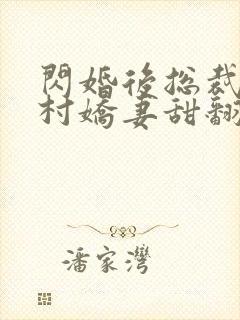 閃婚後總裁
村嬌妻甜翻
潘家灣